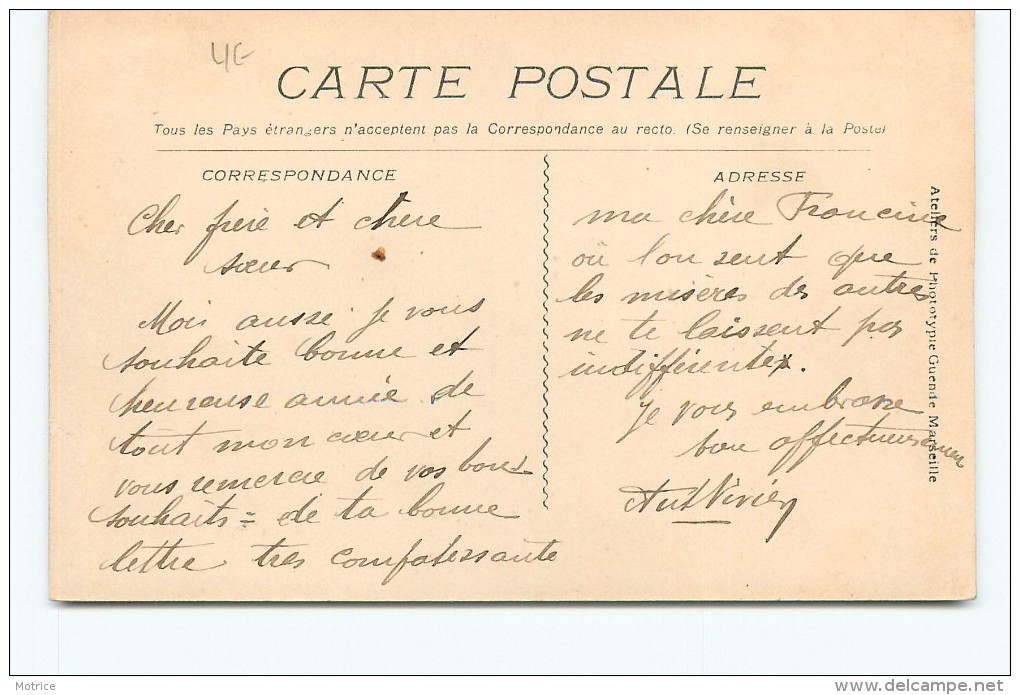 4€
CARTE POSTALE
Tous les Pays étrangers n'acceptent pas la Correspondance au recto. (Se renseigner à la Poste)
CORRESPONDANCE
Cher frère et chere
sœur
Mois aussi je vous
souhaite bonne et
heureuse année de
tout mon cœur et
vous remercie de vos bons
souhaits = de ta bonne
lettre tres compatissante
ADRESSE
ma chère Francine
où l'on sent que
les misères des autres
ne te laissent pas
indifférente.
Je vous embrasse
bon affectueusemen
Ant Vivier
Ateliers de Phototypie Guende Marseille
Motrice
delcampe.net